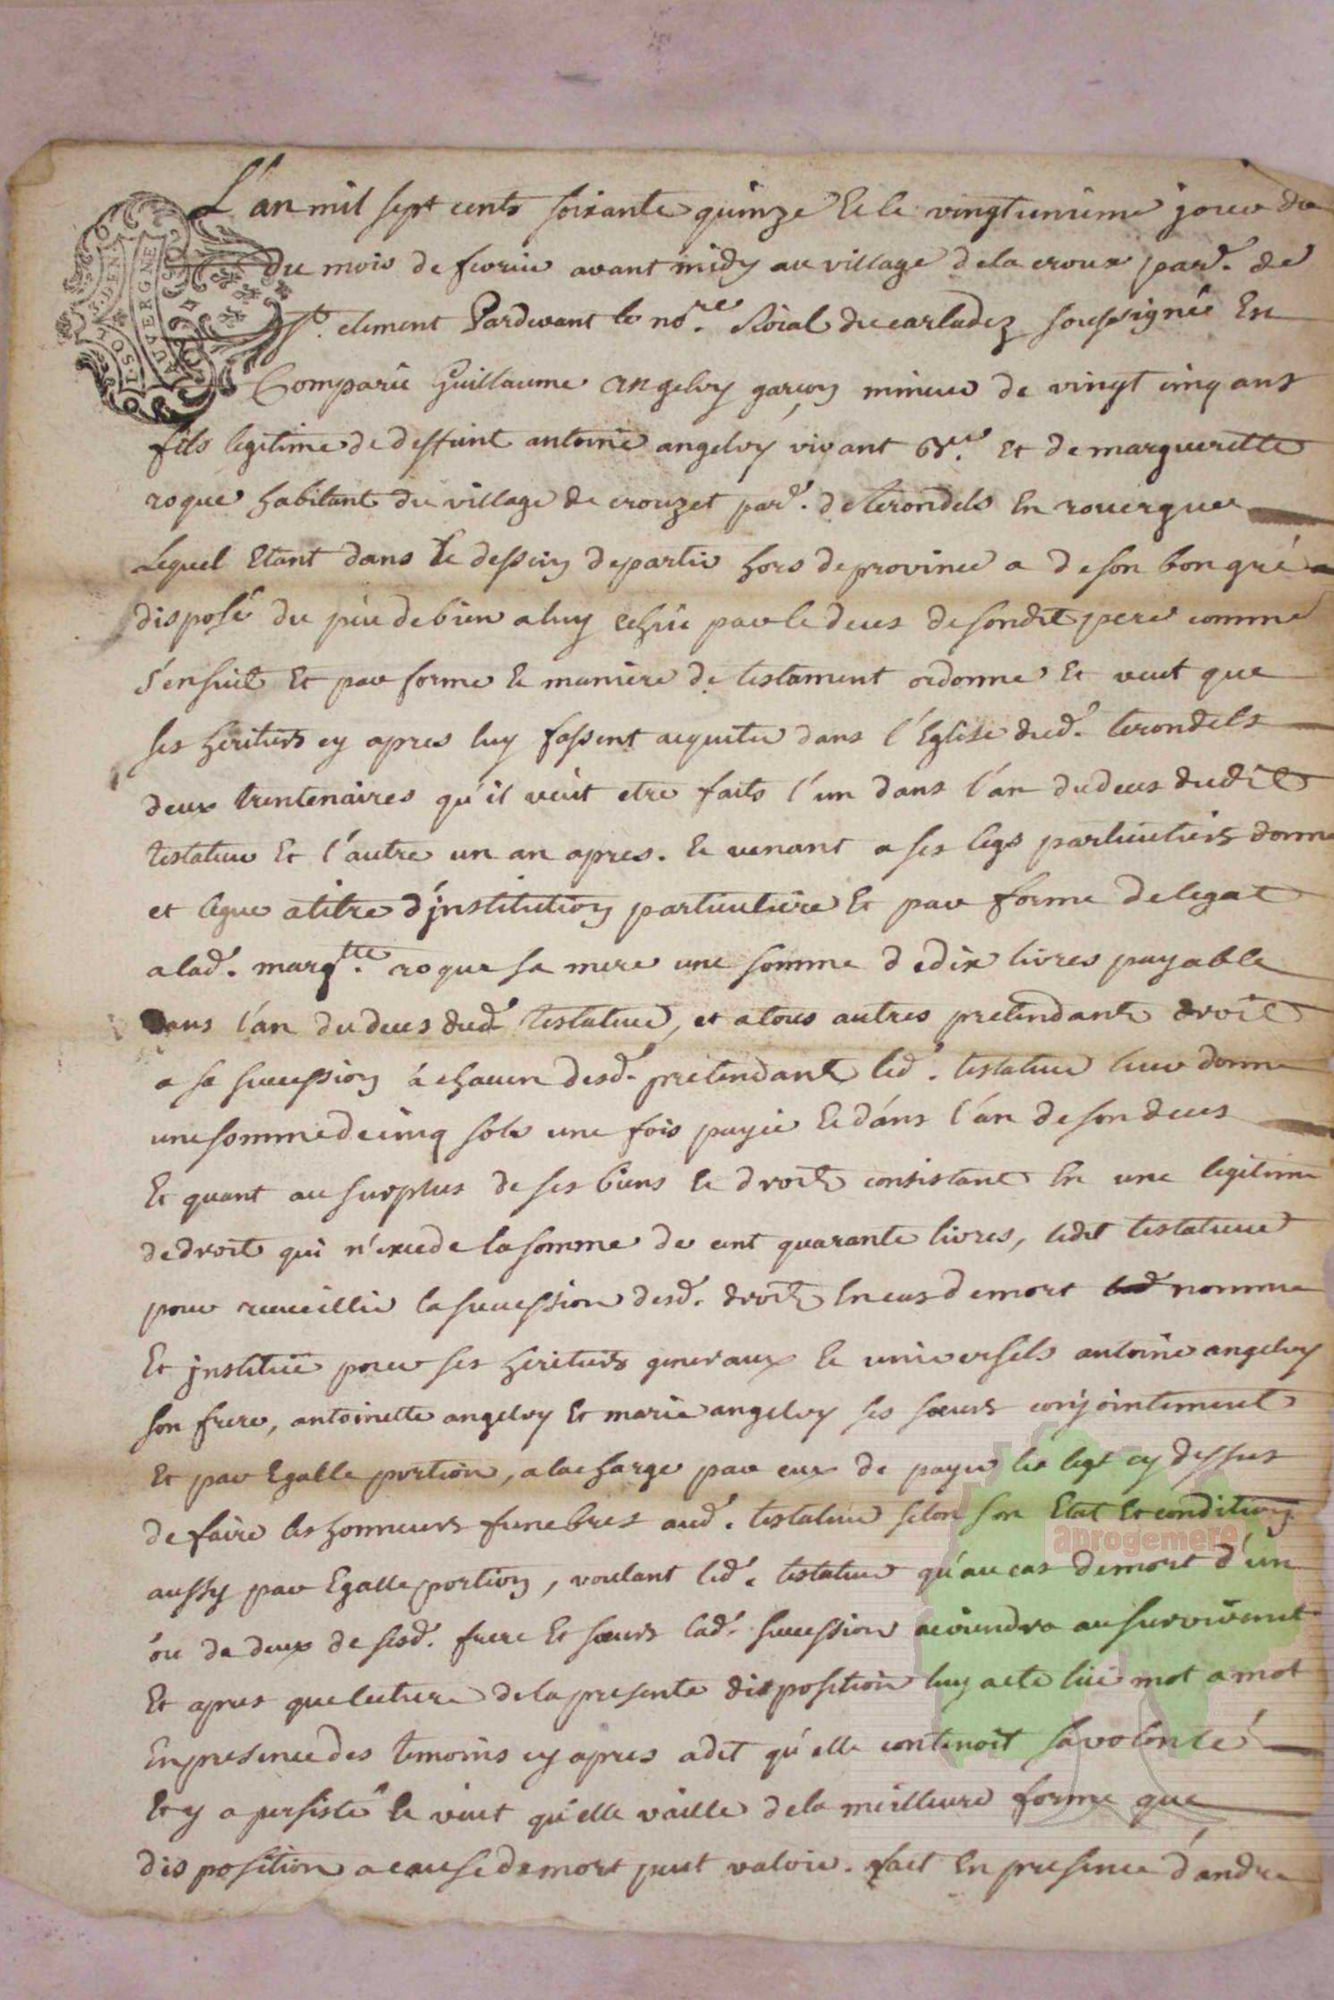 L'an mil sept cents soixante quinze Et le vingtunieme jour du
du mois de fevrier avant midy au village de la croux parr. de
St. clement Pardevant le nore. Roial du carladez soussigné En
Comparu Guillaume angelvy garçon mineur de vingt cinq ans
fils legitime de deffunt antoine angelvy vivant et de margueritte
roque habitant du village de crouzet parr. de terondels En rouergue
Lequel Etant dans le dessein de partir hors de province a de son bon gré
disposé du peu de bien a luy echue par le deces de sondit pere comme
s'ensuit Et par forme Et maniere de testament ordonne Et veut que
ses heritiers cy apres luy fassent acquiter dans l'Eglise dud. terondels
deux trentenaires qu'il veut etre faits l'un dans l'an du deces dudit
testateur Et l'autre un an apres. Et venant a ses legs particuliers donne
et legue a titre d'jnstitution particuliere Et par forme de legat
a lad. margtte. roque sa mere une somme de dix livres payable
Dans l'an du deces dud testateur, et a tous autres pretendants droit
a sa succession a chacun desd. pretendants led. testateur leur donne
une somme de cinq sols une fois payée Et dans l'an de son deces
Et quant au surplus de ses biens Et droits consistant En une legitime
de droits qui n'excede la somme de cent quarante livres, ledit testateur
pour recueillir la succession desd. droits En cas de mort nomme
Et jnstitue pour ses heritiers generaux Et universels antoine angelvy
son frere, antoinette angelvy Et marie angelvy ses sœurs conjointement
Et par Egalle portion, a la charge par eux de payer les legs cy dessus
de faire les honneurs funebres aud. testateur selon son Etat Et condition
aussy par Egalle portion, voulant led. testateur qu'au cas de mort d'un
ou de deux de sesd. frere Et sœurs lad. succession reviendra au survivant
Et apres que lecture de la presente disposition luy a ete lüe mot a mot
En presence des temoins cy apres a dit qu'elle contenoit sa volonté
Et y a persisté Et veut qu'elle vaille de la meilleure forme que
disposition a cause de mort peut valoir. fait En presence d'andre
aprogemere